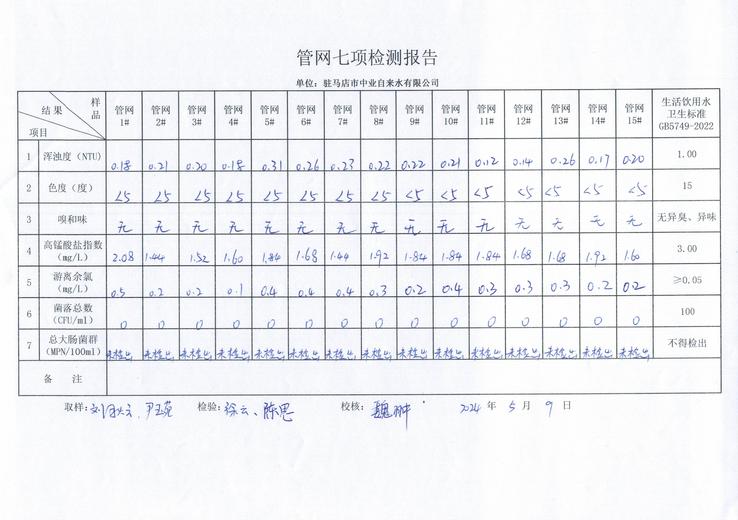 管网七项检测报告
单位：驻马店市中业自来水有限公司
结果 样品 项目 管网1# 管网2# 管网3# 管网4# 管网5# 管网6# 管网7# 管网8# 管网9# 管网10# 管网11# 管网12# 管网13# 管网14# 管网15# 生活饮用水卫生标准GB5749-2022
1 浑浊度（NTU） 0.18 0.21 0.20 0.18 0.31 0.26 0.23 0.22 0.22 0.21 0.12 0.14 0.26 0.17 0.20 1.00
2 色度（度） <5 <5 <5 <5 <5 <5 <5 <5 <5 <5 <5 <5 <5 <5 <5 15
3 嗅和味 无 无 无 无 无 无 无 无 无 无 无 无 无 无 无 无异臭、异味
4 高锰酸盐指数（mg/L） 2.08 1.44 1.52 1.60 1.84 1.68 1.44 1.92 1.84 1.84 1.84 1.68 1.68 1.92 1.60 3.00
5 游离余氯（mg/L） 0.5 0.2 0.2 0.1 0.4 0.4 0.4 0.3 0.2 0.4 0.3 0.3 0.3 0.2 0.2 ≥0.05
6 菌落总数（CFU/ml） 0 0 0 0 0 0 0 0 0 0 0 0 0 0 0 100
7 总大肠菌群（MPN/100ml） 未检出 未检出 未检出 未检出 未检出 未检出 未检出 未检出 未检出 未检出 未检出 未检出 未检出 未检出 未检出 不得检出
备 注
取样： 检验：徐云、陈思 校核：魏翀 2024 年 5 月 9 日